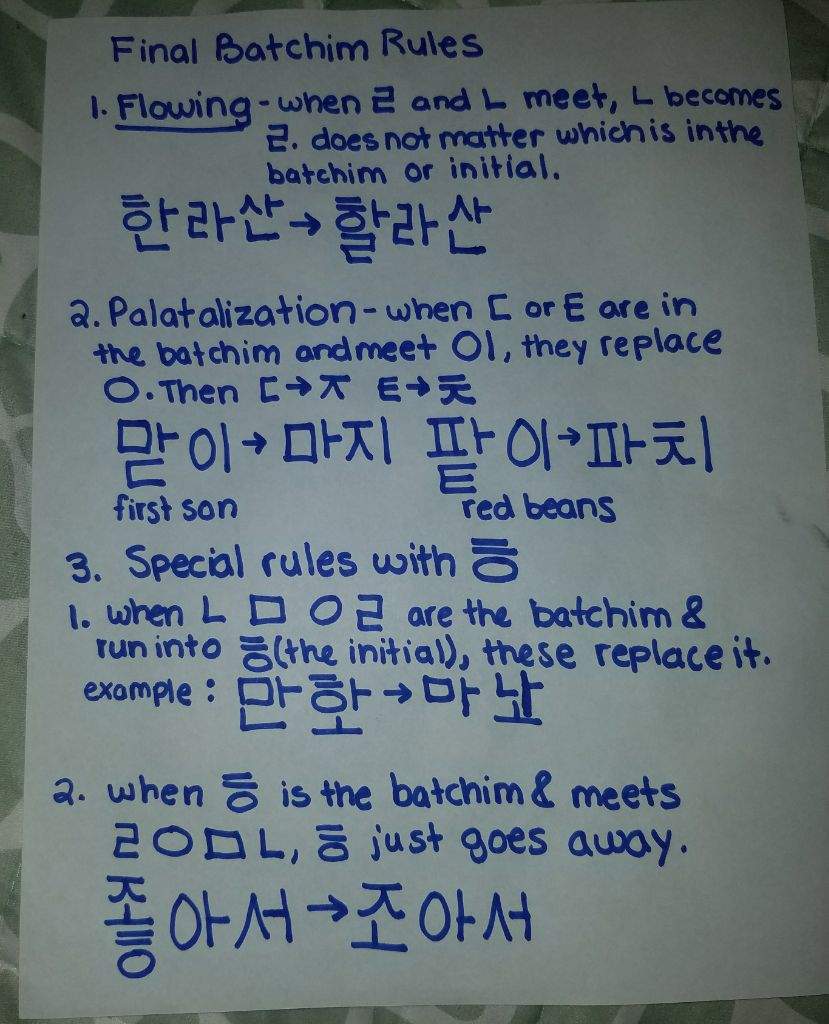 Final Batchim Rules
1. Flowing - when ㄹ and ㄴ meet, ㄴ becomes
ㄹ. does not matter which is in the
batchim or initial.
한라산→할라산
2. Palatalization - when ㄷ or ㅌ are in
the batchim and meet 이, they replace
ㅇ. Then ㄷ→ㅈ ㅌ→ㅊ
맏이→마지 팥이→파치
first son red beans
3. Special rules with ㅎ
1. when ㄴ ㅁ ㅇ ㄹ are the batchim &
run into ㅎ(the initial), these replace it.
example:만화→마놔
2. when ㅎ is the batchim & meets
ㄹㅇㅁㄴ, ㅎ just goes away.
좋아서→조아서